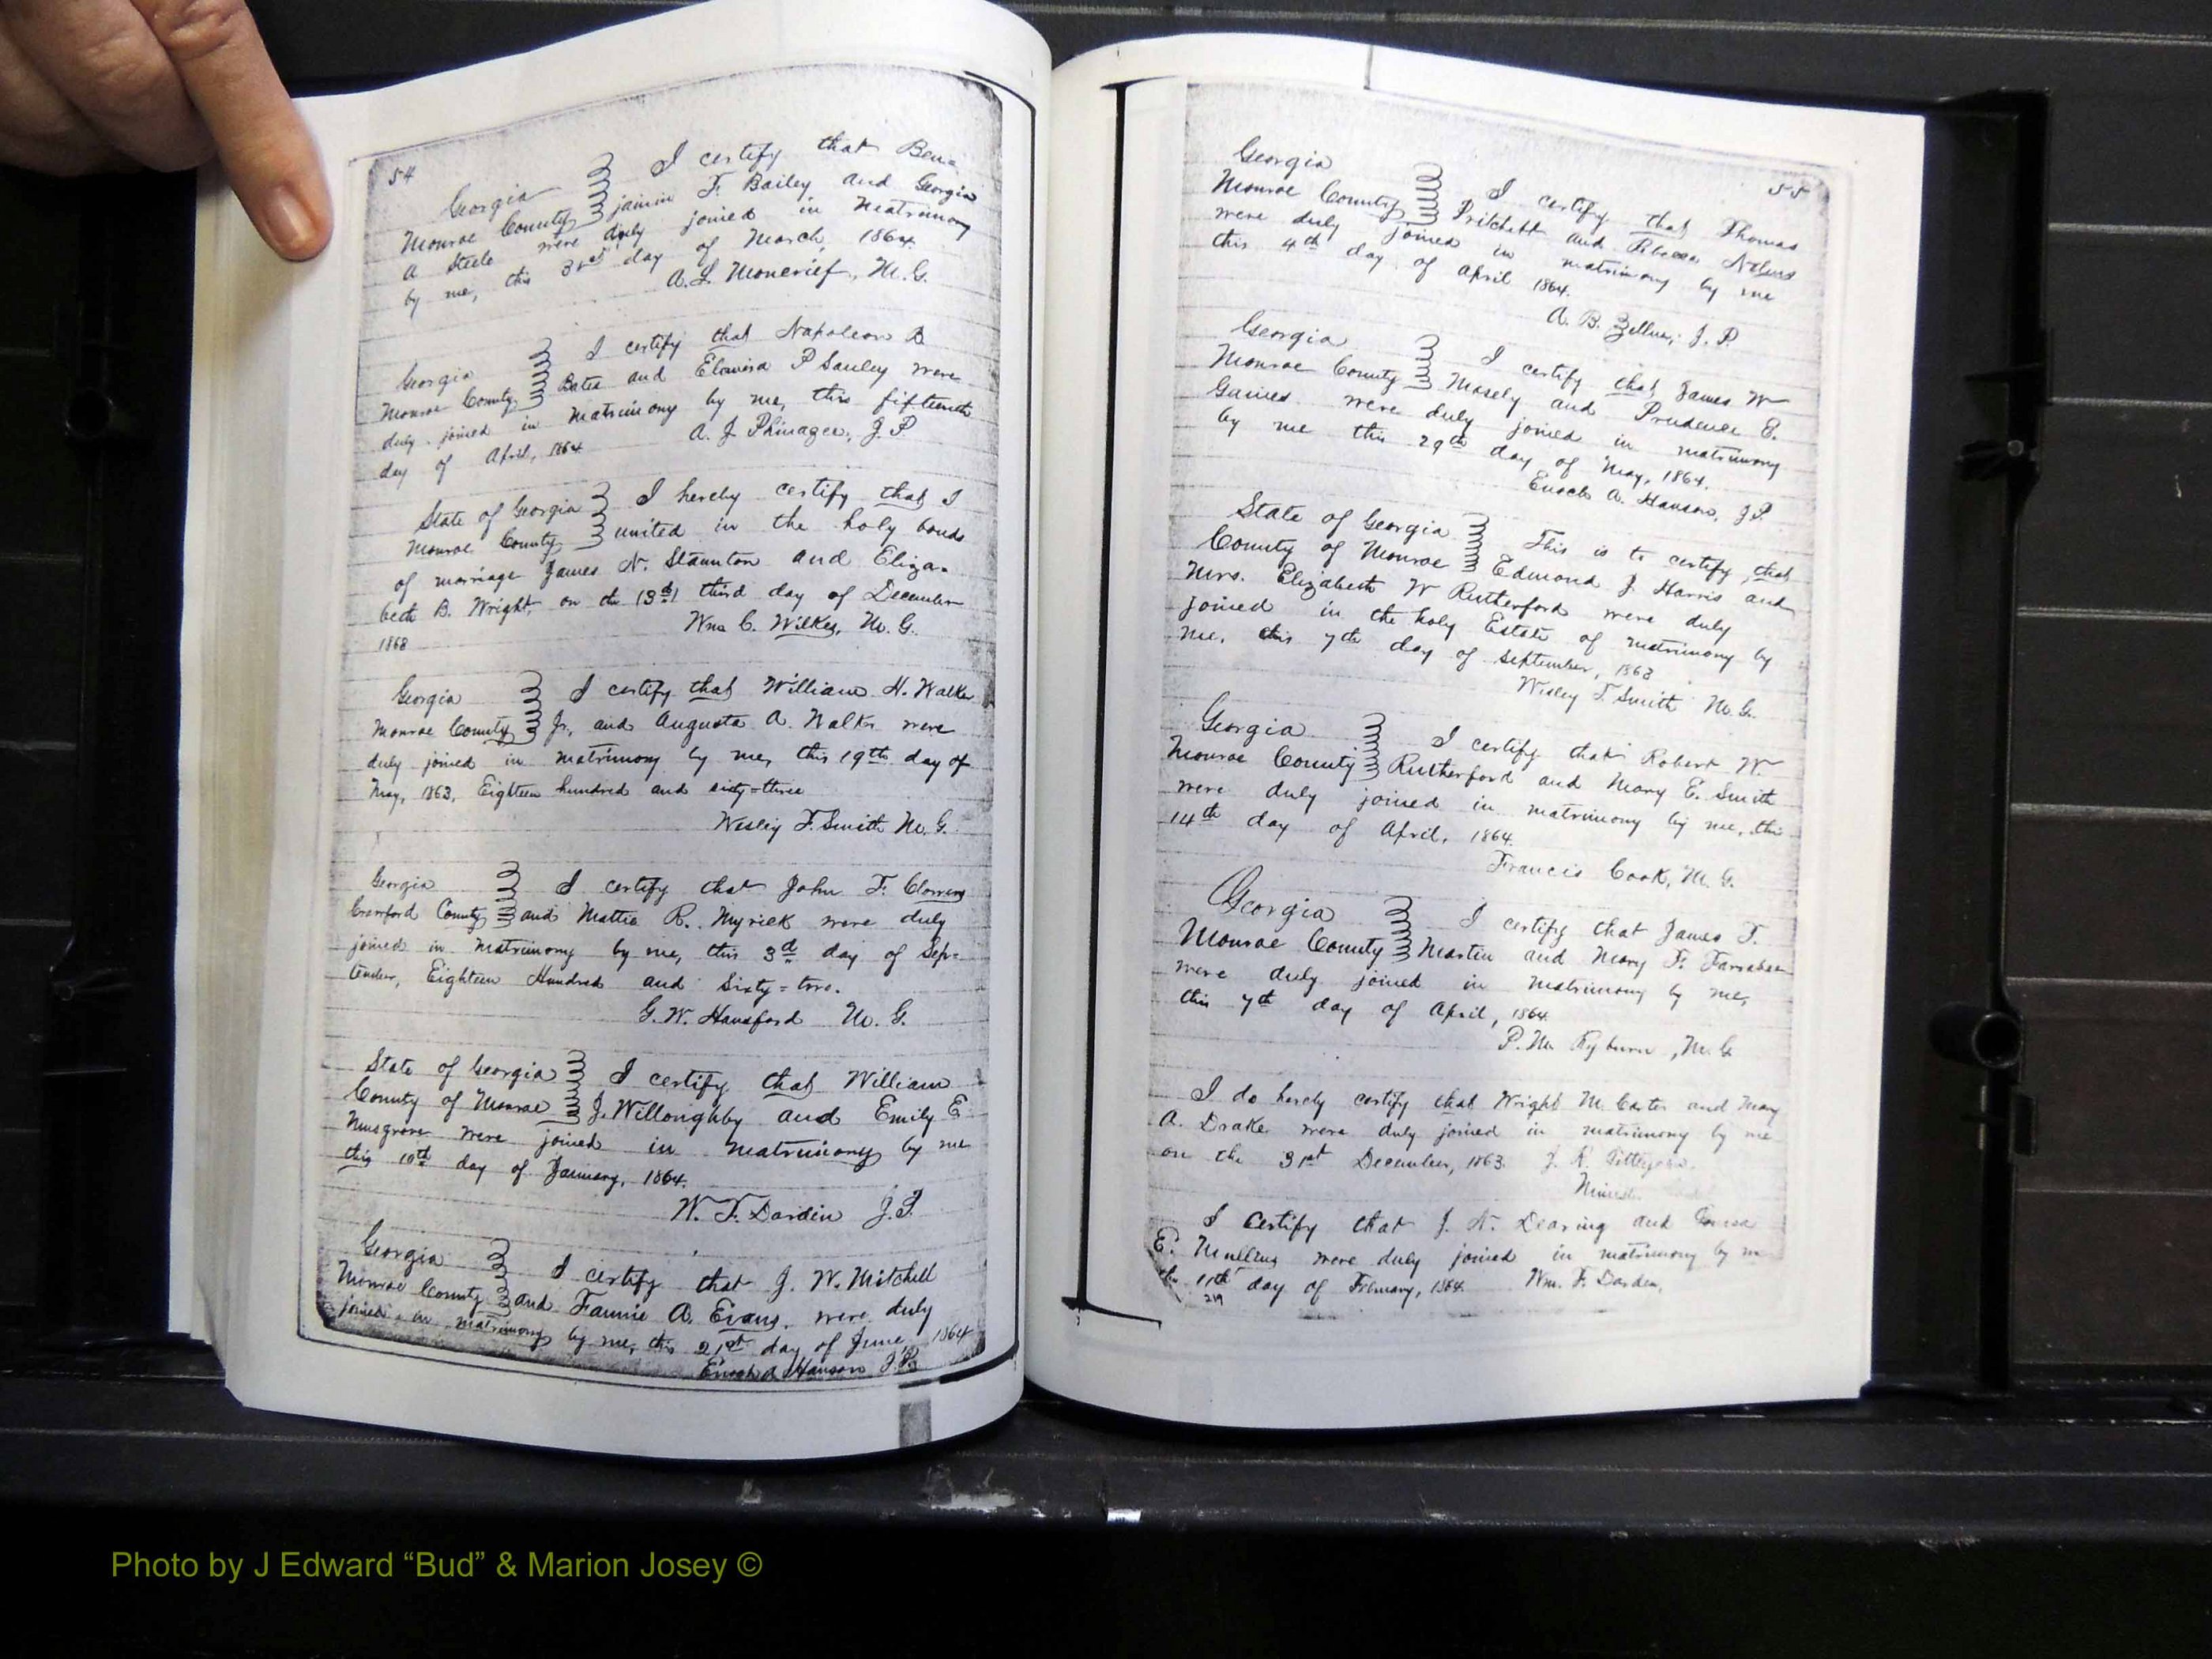 54
Georgia
Monroe County
I certify that Ben=
jamin F. Bailey and Georgia
A Steele were duly joined in Matrimony
by me, this 31st day of March, 1864.
A. L. Moncrief, M. G.
Georgia
Monroe County
I certify that Napoleon B
Bates and P Sauley were
duly joined in matrimony by me, this fifteenth
day of April, 1864
A. J. Phinazee, J. P.
State of Georgia
Monroe County
I hereby certify that I
united in the holy bonds
of marriage James N. Staunton and Eliza=
beth B. Wright, on the (3d) third day of December
1868
Wm C. Wilkes, M. G.
Georgia
Monroe County
I certify that William H. Walker
Jr, and Augusta A. Walker were
duly joined in matrimony by me, this 19th day of
May, 1863, Eighteen hundred and sixty=three
Wesley F. Smith M. G.
Georgia
Crawford County
I certify that John F. Clowers
and Mattie R. Myrick were duly
joined in matrimony by me, this 3d day of Sep=
tember, Eighteen Hundred and Sixty=two.
G. W. Hansford M. G.
State of Georgia
County of Monroe
I certify that William
J. Willoughby and Emily E
Musgrove were joined in Matrimony by me
this 10th day of January, 1864.
W. F. Darden J. P.
Georgia
Monroe County
I certify that J. W. Mitchell
and Fannie A. Evans, were duly
joined in matrimony by me, this 21st day of June, 1864
Enoch A Hanson J. P.
55
Georgia
Monroe County
I certify that Thomas
Pritchett and Rebecca
were duly joined in matrimony by me
this 4th day of April 1864.
A. B. Zellner, J. P.
Georgia
Monroe County
I certify that James W
Mosely and Prudence E.
Gaines were duly joined in matrimony
by me this 29th day of May, 1864.
Enoch A. Hanson, J P.
State of Georgia
County of Monroe
This is to certify that
Edmond J. Harris and
Mrs. Elizabeth W Rutherford were duly
joined in the holy Estate of matrimony by
me, this 7th day of September, 1863
Wesley F. Smith M. G.
Georgia
Monroe County
I certify that Robert W.
Rutherford and Mary E. Smith
were duly joined in matrimony by me, this
14th day of April, 1864.
Francis Cook, M. G.
Georgia
Monroe County
I certify that James T.
Martin and Mary F.
were duly joined in matrimony by me,
this 7th day of April, 1864
P. M. Ryburn, M. G
I do hereby certify that Wright M. Carter and Mary
A. Drake were duly joined in matrimony by me
on the 31st December, 1863.
Minister
I certify that J. N. Dearing and
E. Mullins were duly joined in matrimony by me
11th day of February, 1864. Wm. F. Darden,
219
Photo by J Edward “Bud” & Marion Josey ©